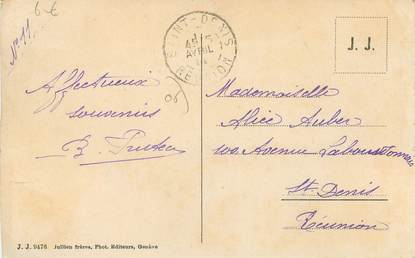 6 €
N° 11.
SAINT-DENIS
AVRIL
RÉUNION
J. J.
Affectueux
souvenirs
Mademoiselle
Alice Auber
100 Avenue Labourdonnais
St Denis
Réunion
J. J. 9476 Jullien frères, Phot. Editeurs, Genève